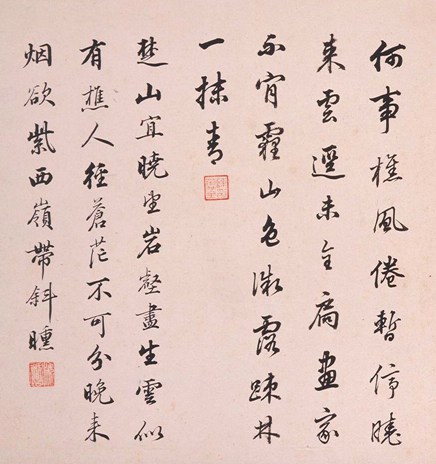 何事樵風倦暫停曉
来雲邐未全扃畫家
不肯霾山色微露踈林
一抹青
楚山宜曉望岩壑盡生雲似
有樵人徑蒼茫不可分晚来
烟欲紫西嶺帶斜曛